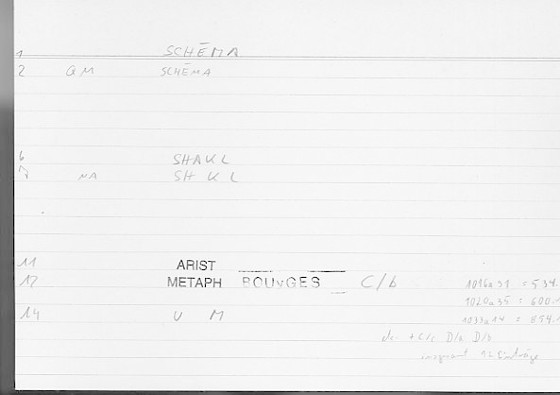 1 SCHĒMA
2 GM SCHĒMA
6 SHAKL
7 NA SH K L
11 ARIST
12 METAPH BOUYGES C/b 1016a31 = 534.
1020a35 = 600.
14 U M 1033a14 = 854.1
etc. + C/c D/a D/b
insgesamt 12 Einträge